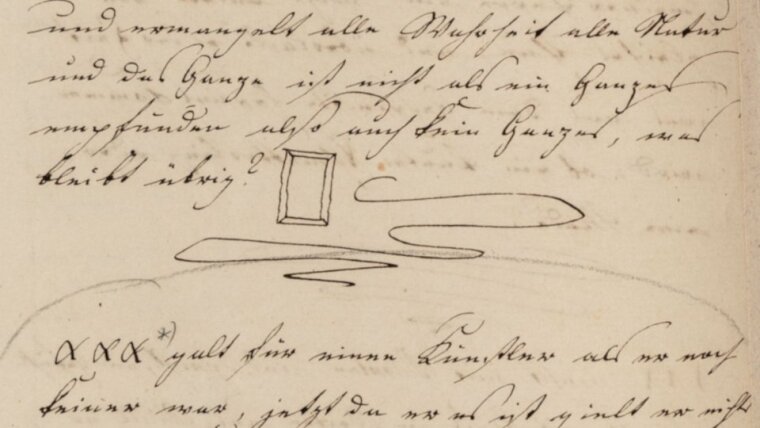 und ermangelt alle Wahrheit alle Natur
und das Ganze ist nicht als ein Ganzes
empfunden also auch kein Ganzes, was
bleibt übrig?
XXX *) galt für einen Künstler als er noch
keiner war, jetzt da er es ist gielt er nichts